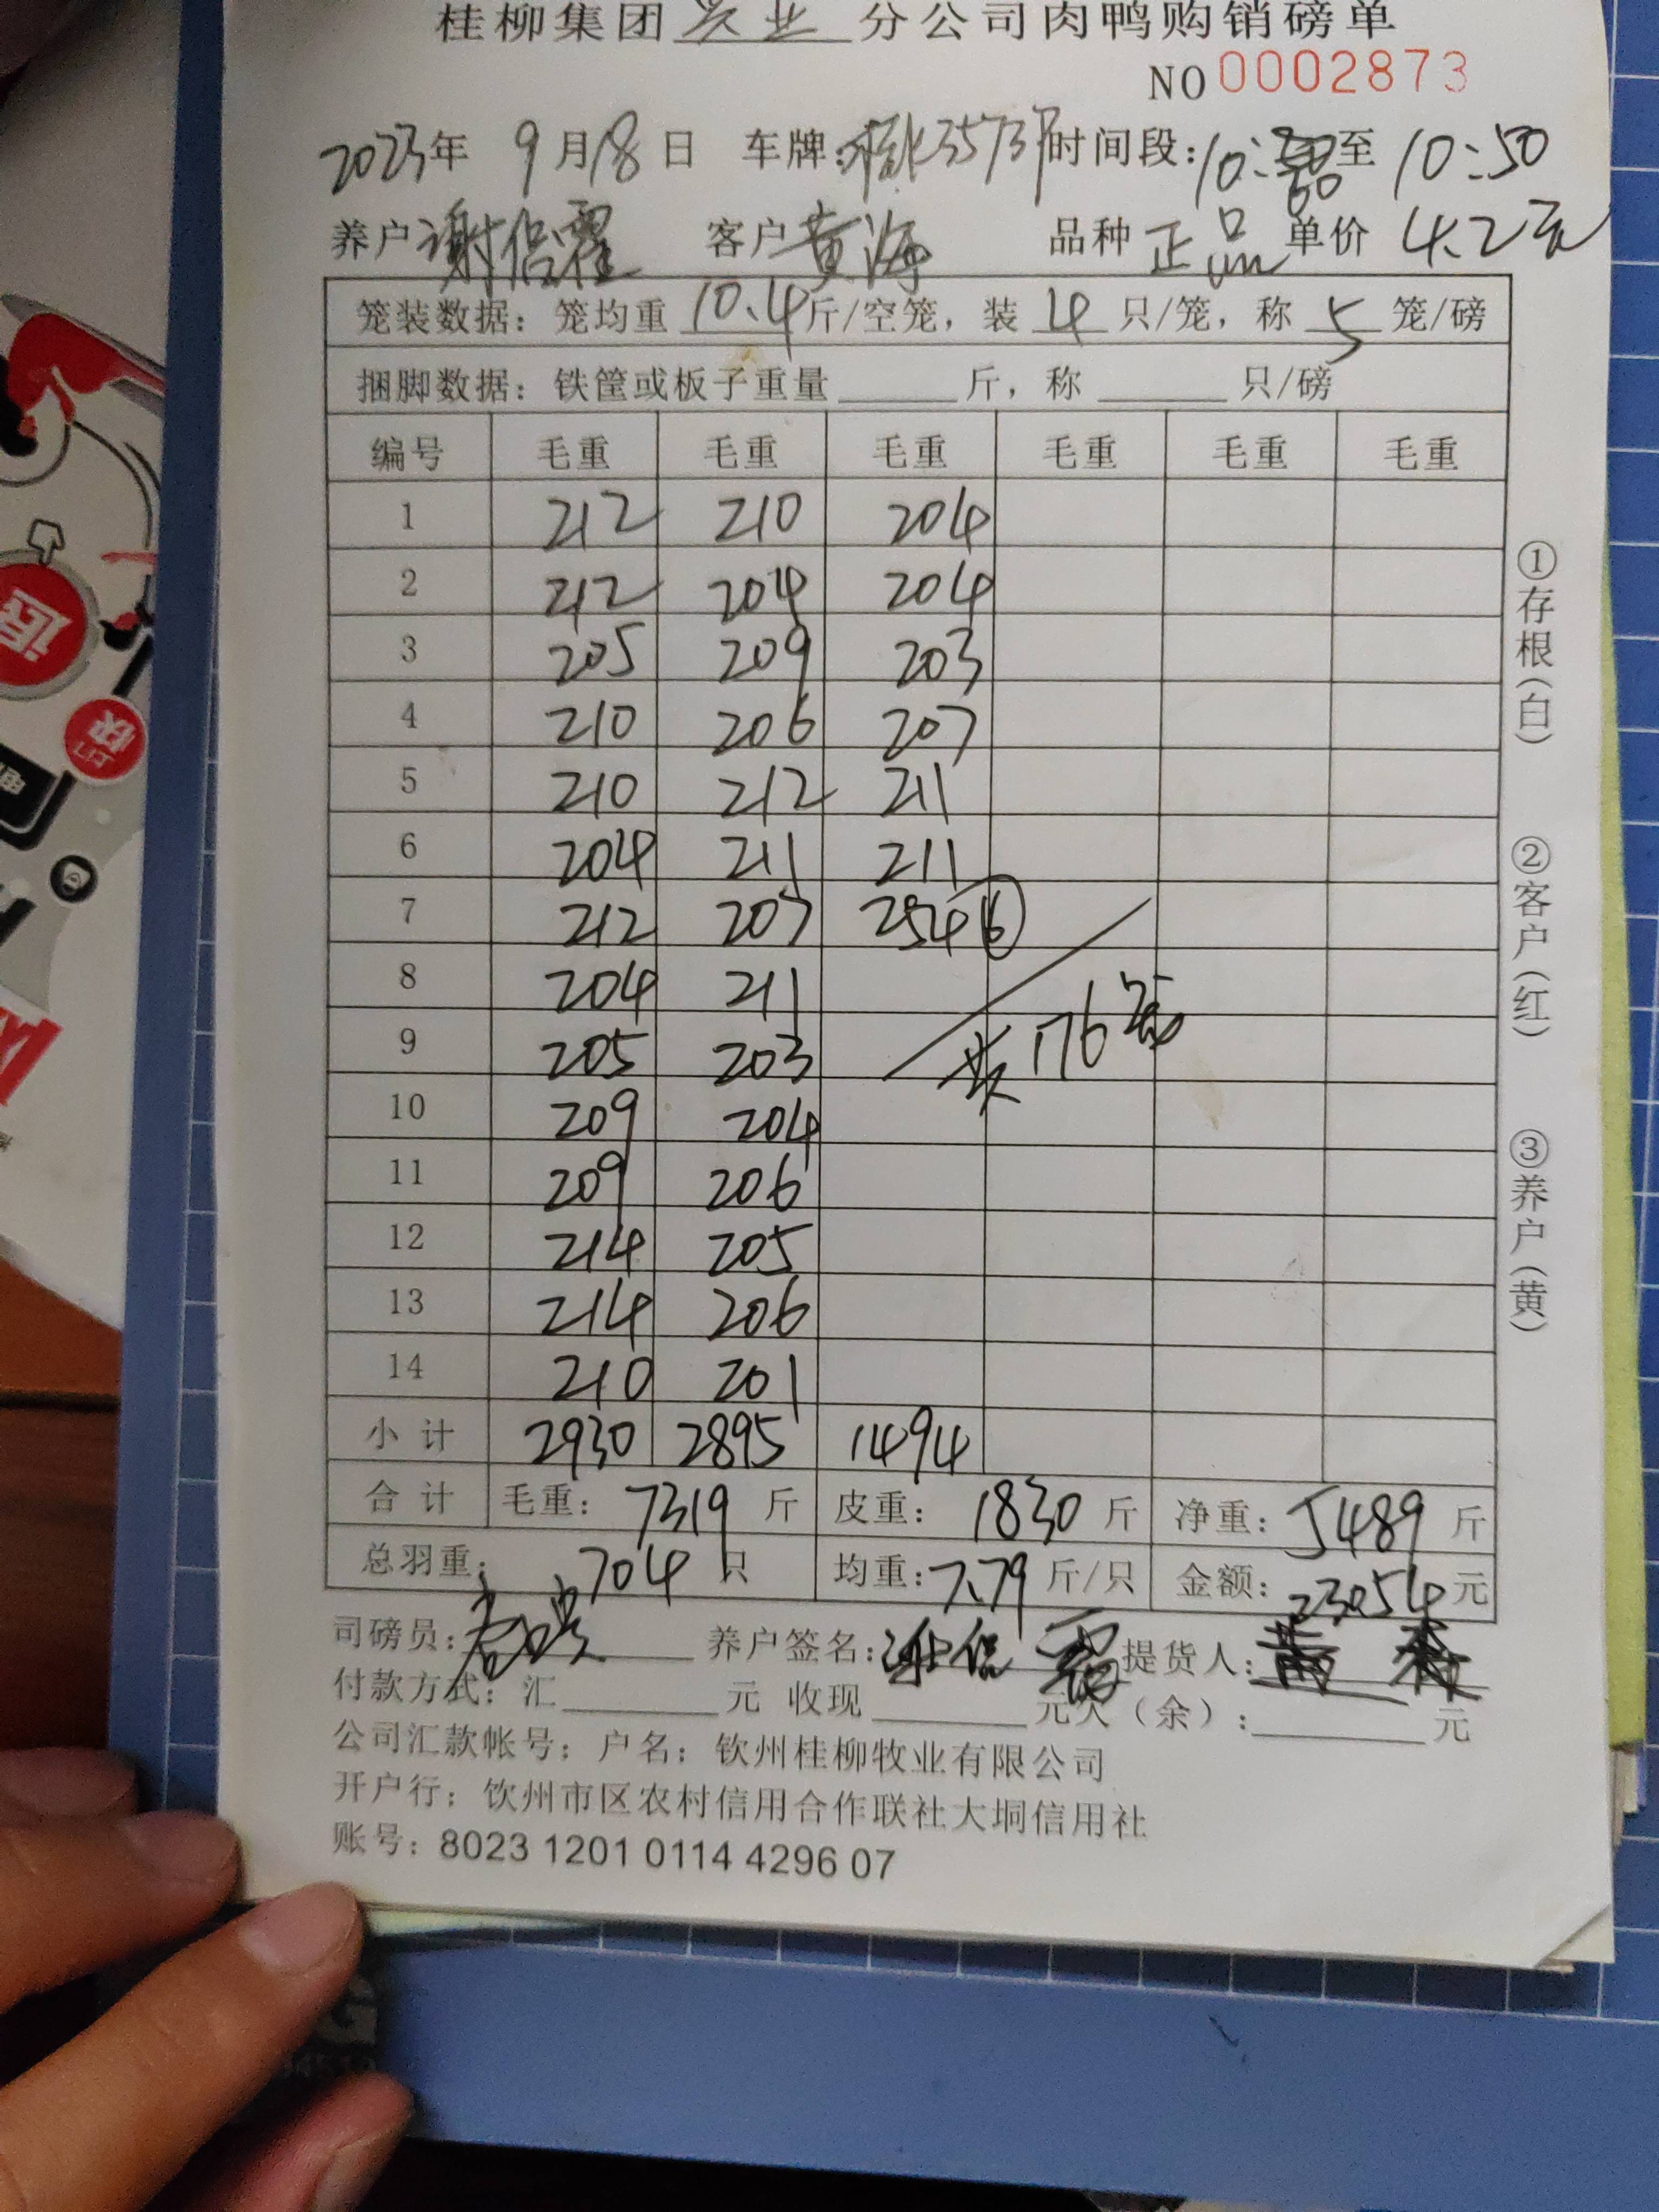 桂柳集团兴业分公司肉鸭购销磅单
NO 0002873
2023年 9月18日 车牌: 35737 时间段: 10: 至 10:50
养户 谢 客户 黄海 品种 正品 单价 4.2元
笼装数据: 笼均重 10.4 斤/空笼, 装 4 只/笼, 称 5 笼/磅
捆脚数据: 铁筐或板子重量 斤, 称 只/磅
编号 毛重 毛重 毛重 毛重 毛重 毛重
1 212 210 204
2 212 204 204
3 205 209 203
4 210 206 207
5 210 212 211
6 204 211 211
7 212 207 254 ⑥
8 204 211
9 205 203 共176笼
10 209 204
11 209 206
12 214 205
13 214 206
14 210 201
小计 2930 2895 1494
合计 毛重: 7319 斤 皮重: 1830 斤 净重: 5489 斤
总羽重: 704 只 均重: 7.79 斤/只 金额: 23054 元
司磅员: 养户签名: 提货人:
付款方式: 汇 元 收现 元欠(余): 元
公司汇款帐号: 户名: 钦州桂柳牧业有限公司
开户行: 饮州市区农村信用合作联社大垌信用社
账号: 8023 1201 0114 4296 07
①存根(白) ②客户(红) ③养户(黄)
退
上门
快